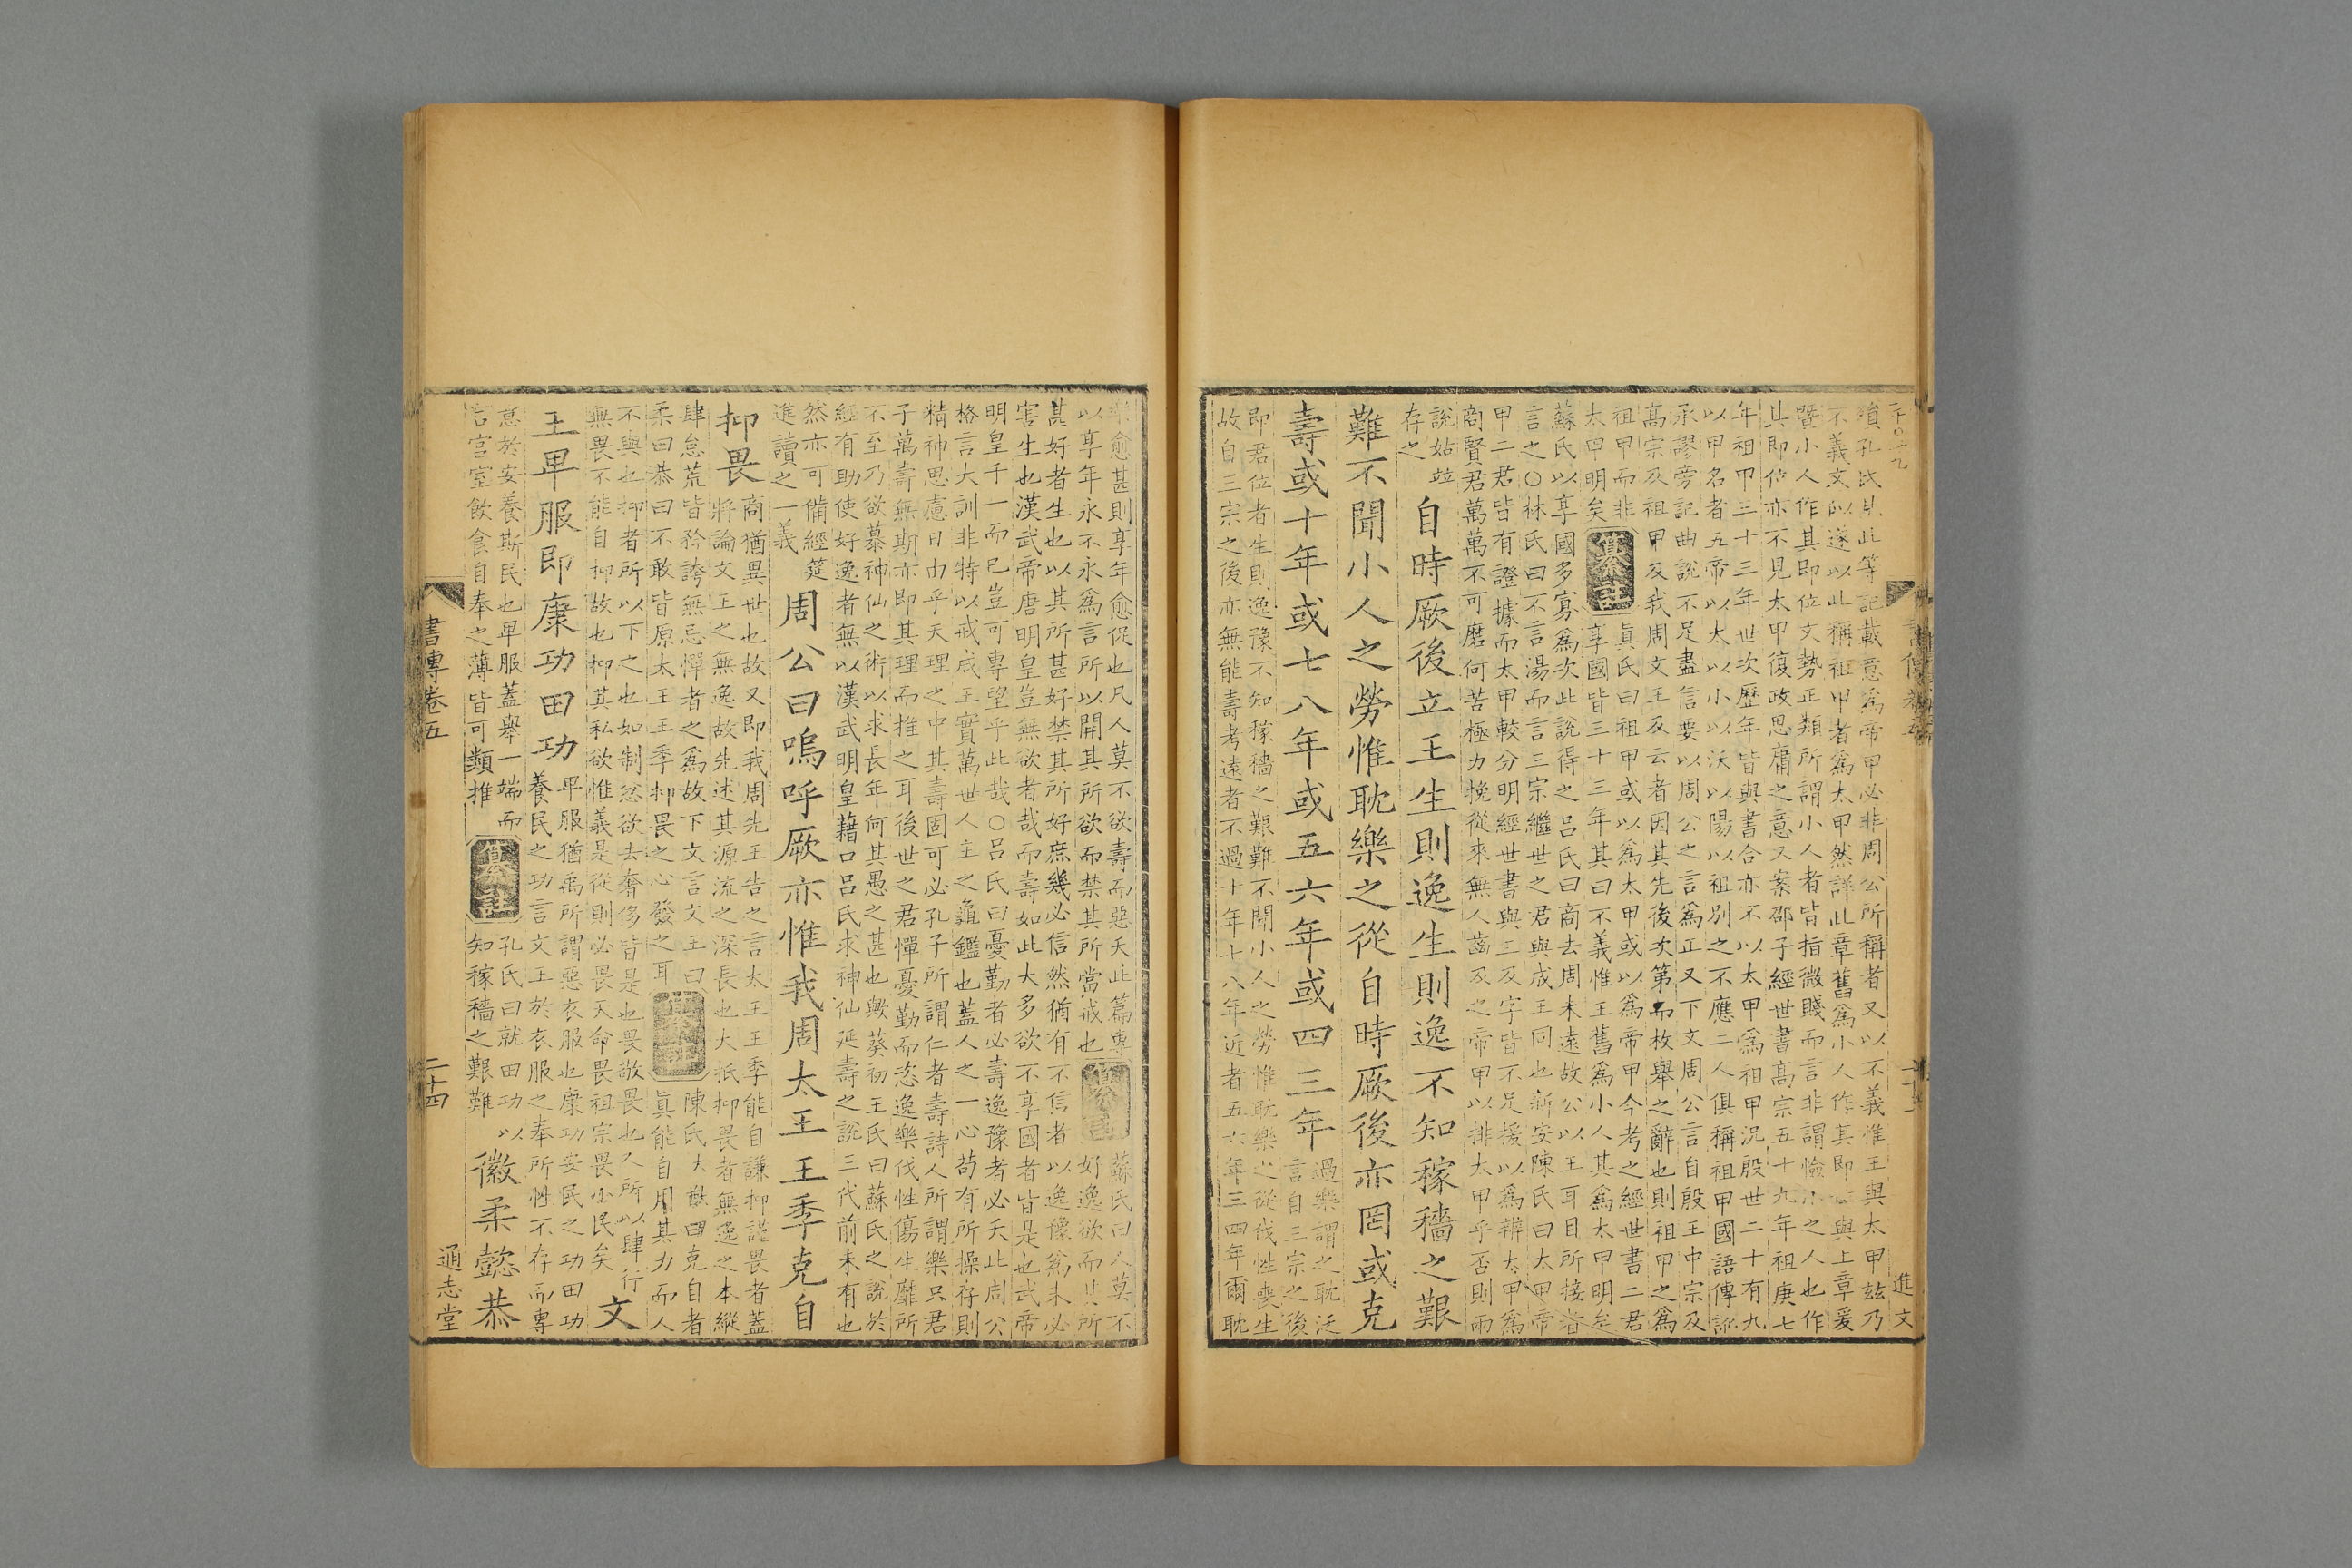 殞孔氏見此等記載意爲帝甲必非周公所稱者又以不義惟王與太甲茲乃
不義文似遂以此稱祖甲者爲太甲然詳此章舊爲小人作其即位與上章爰
曁小人作其即位文勢正類所謂小人者皆指微賤而言非謂憸小之人也作
其即位亦不見太甲復政思庸之意又案邵子經世書高宗五十九年祖庚七
年祖甲三十三年世次歷年皆與書合亦不以太甲爲祖甲況殷世二十有九
以甲名者五帝以太以小以沃以陽以祖別之不應二人俱稱祖甲國語傳訛
承謬旁記曲說不足盡信要以周公之言爲正又下文周公言自殷王中宗及
高宗及祖甲及我周文王及云者因其先後次第而枚舉之辭也則祖甲之爲
祖甲而非
太甲明矣
纂註
眞氏曰祖甲或以爲太甲或以爲帝甲今考之經世書二君
享國皆三十三年其曰不義惟王舊爲小人其爲太甲明矣
蘇氏以享國多寡爲次此說得之呂氏曰商去周未遠故公以王耳目所接者
言之〇林氏曰不言湯而言三宗繼世之君與成王同也新安陳氏曰太甲帝
甲二君皆有證據而太甲較分明經世書與三及字皆不足援以爲辨太甲爲
商賢君萬萬不可磨何苦極力挽從來無人齒及之帝甲以排太甲乎否則兩
說姑竝
存之
自時厥後立王生則逸生則逸不知稼穡之艱
難不聞小人之勞惟耽樂之從自時厥後亦罔或克
壽或十年或七八年或五六年或四三年
過樂謂之耽泛
言自三宗之後
即君位者生則逸豫不知稼穡之艱難不聞小人之勞惟耽樂之從伐性喪生
故自三宗之後亦無能壽考遠者不過十年七八年近者五六年三四年爾耽
書傳卷五
進文
樂愈甚則享年愈促也凡人莫不欲壽而惡夭此篇專
以享年永不永爲言所以開其所欲而禁其所當戒也
纂註
蘇氏曰人莫不
好逸欲而其所
甚好者生也以其所甚好禁其所好庶幾必信然猶有不信者以逸豫爲未必
害生也漢武帝唐明皇豈無欲者哉而壽如此大多欲不享國者皆是也武帝
明皇千一而已豈可專望乎此哉〇呂氏曰憂勤者必壽逸豫者必夭此周公
格言大訓非特以戒成王實萬世人主之龜鑑也蓋人之一心苟有所操存則
精神思慮日由乎天理之中其壽固可必孔子所謂仁者壽詩人所謂樂只君
子萬壽無期亦即其理而推之耳後世之君憚憂勤而恣逸樂伐性傷生靡所
不至乃欲慕神仙之術以求長年何其愚之甚也歟葵初王氏曰蘇氏之說於
經有助使好逸者無以漢武明皇藉口呂氏求神仙延壽之說三代前未有也
然亦可備經筵
進讀之一義
周公曰嗚呼厥亦惟我周太王王季克自
抑畏
商猶異世也故又即我周先王告之言太王王季能自謙抑謹畏者蓋
將論文王之無逸故先述其源流之深長也大抵抑畏者無逸之本縱
肆怠荒皆矜誇無忌憚者之爲故下文言文王曰
柔曰恭曰不敢皆原太王王季抑畏之心發之耳
纂註
陳氏大猷曰克自者
眞能自用其力而人
不與也抑者所以下之也如制忿欲去奢侈皆是也畏敬畏也人所以肆行
無畏不能自抑故也抑其私欲惟義是從則必畏天命畏祖宗畏小民矣
文
王卑服即康功田功
卑服猶禹所謂惡衣服也康功安民之功田功
養民之功言文王於衣服之奉所性不存而專
意於安養斯民也卑服蓋舉一端而
言宮室飲食自奉之薄皆可類推
纂註
孔氏曰就田功以
知稼穡之艱難
徽柔懿恭
書傳卷五
二十四
通志堂